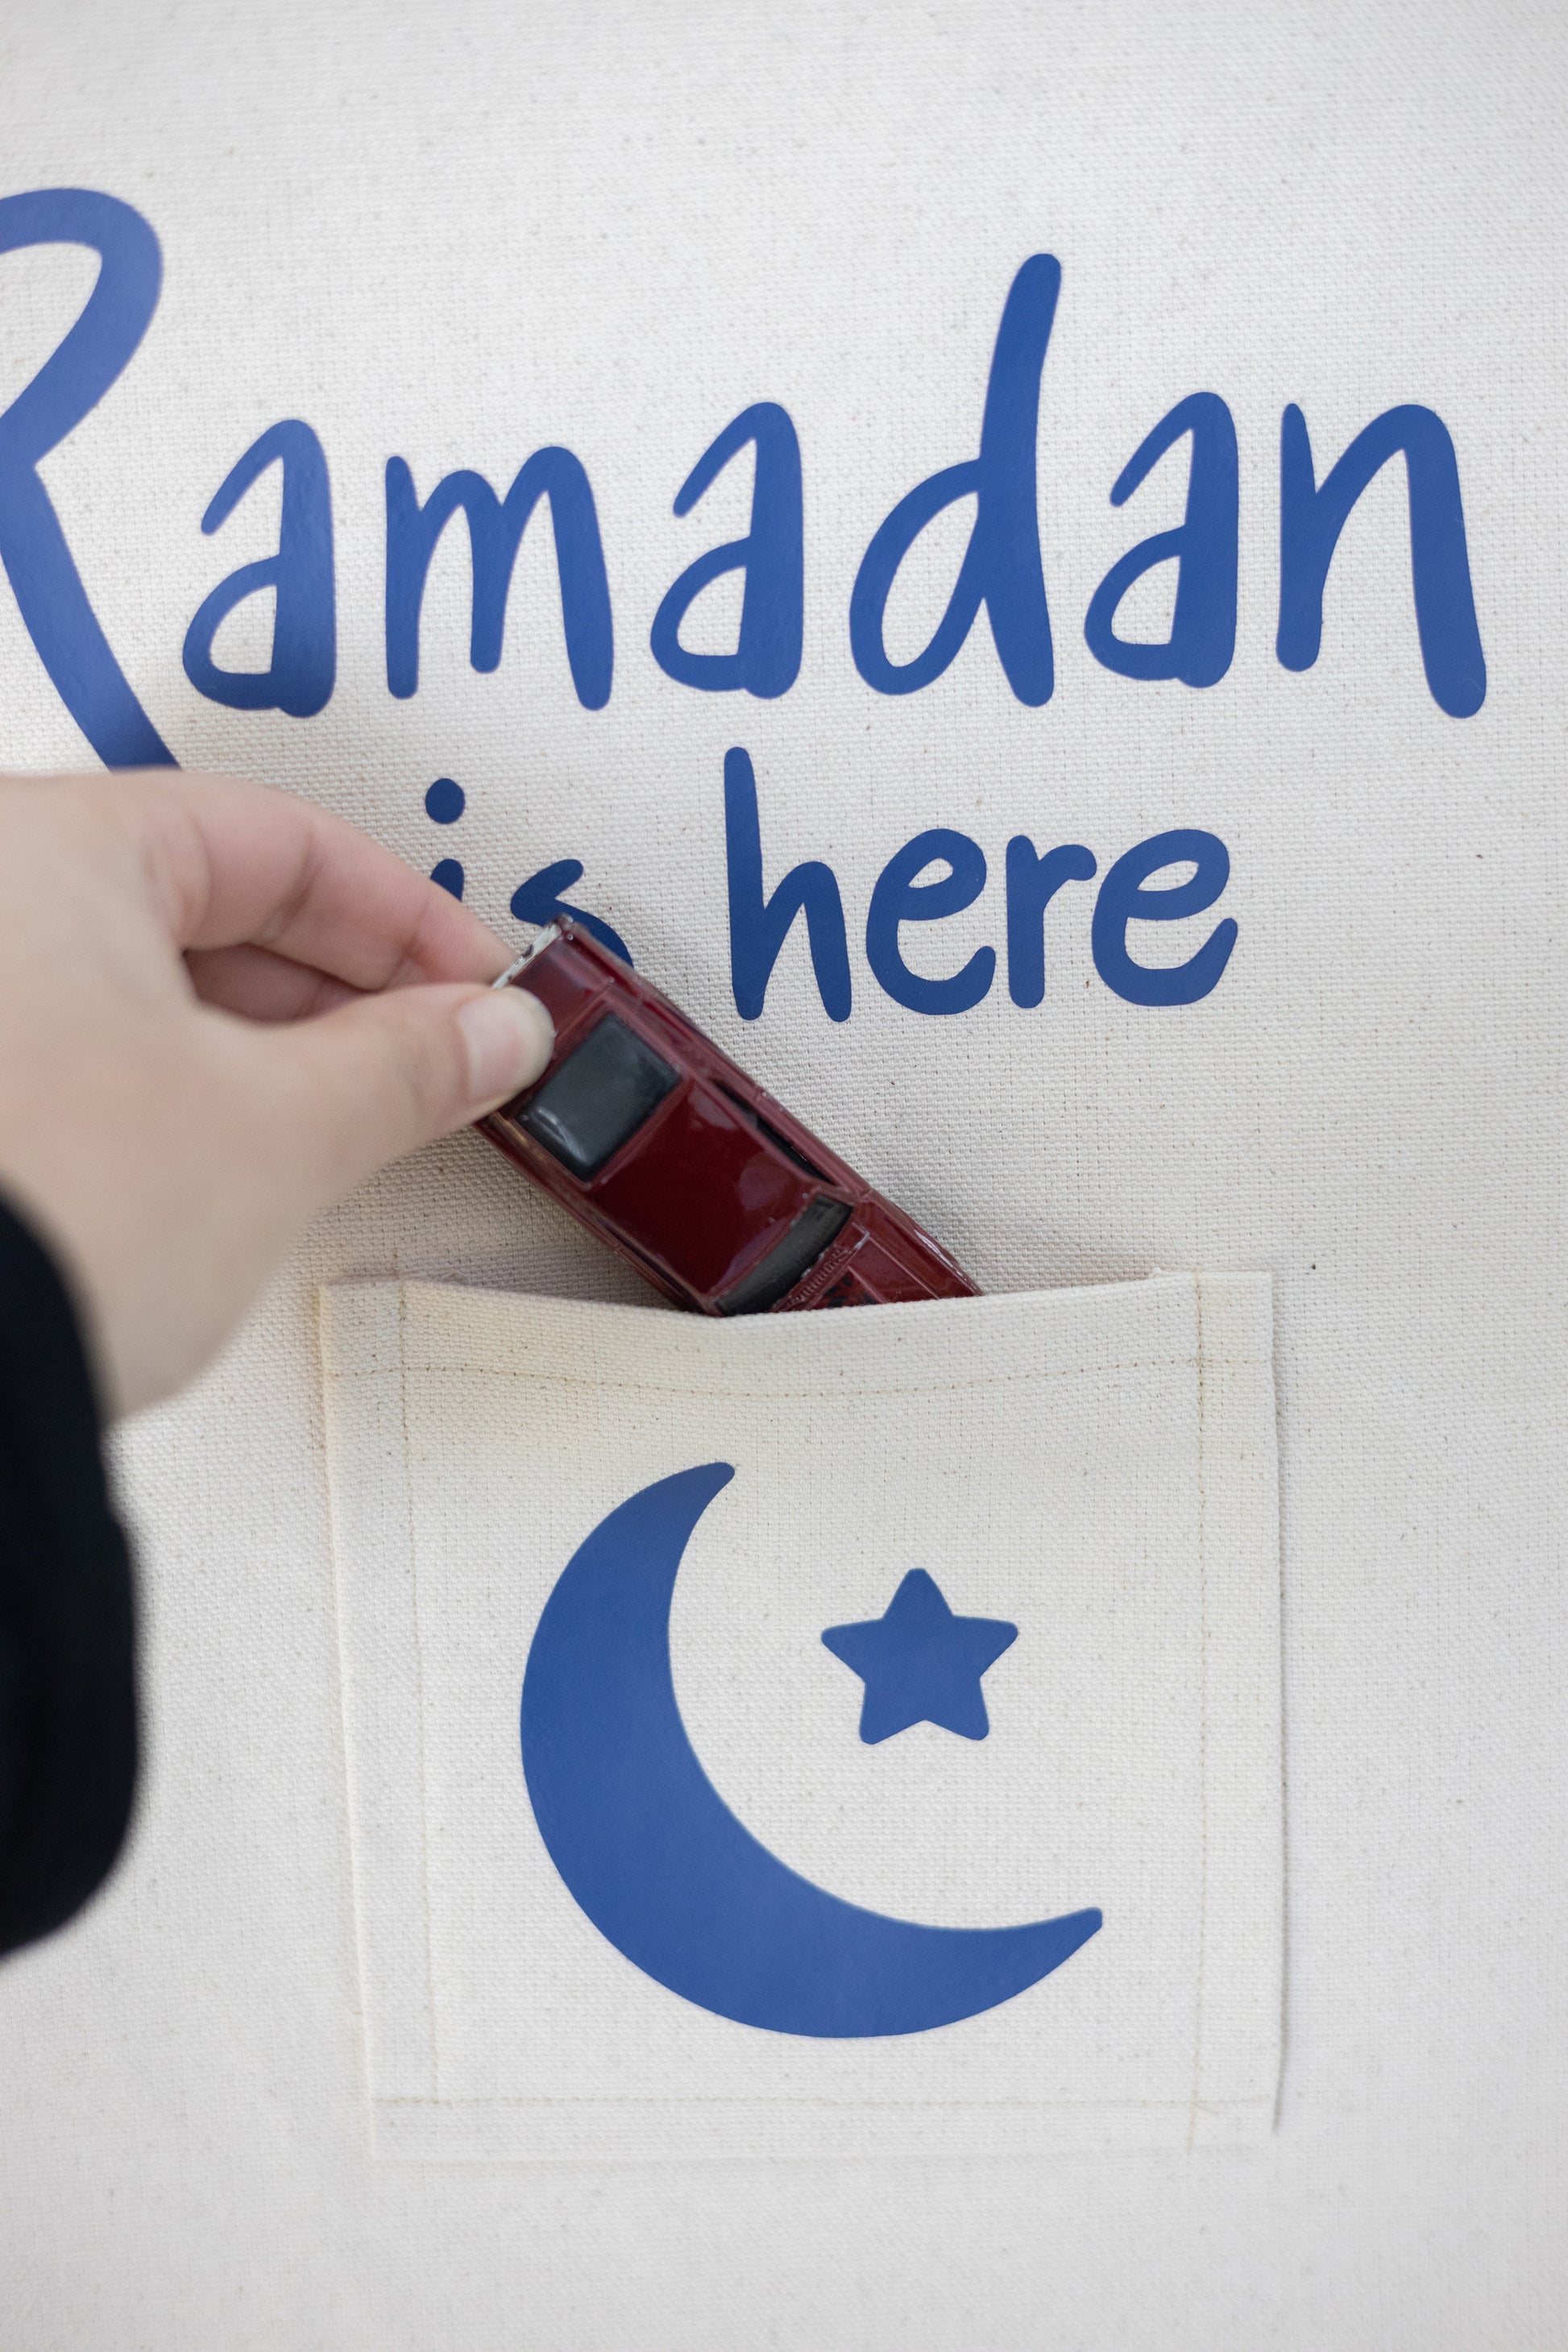 Ramadan
is here